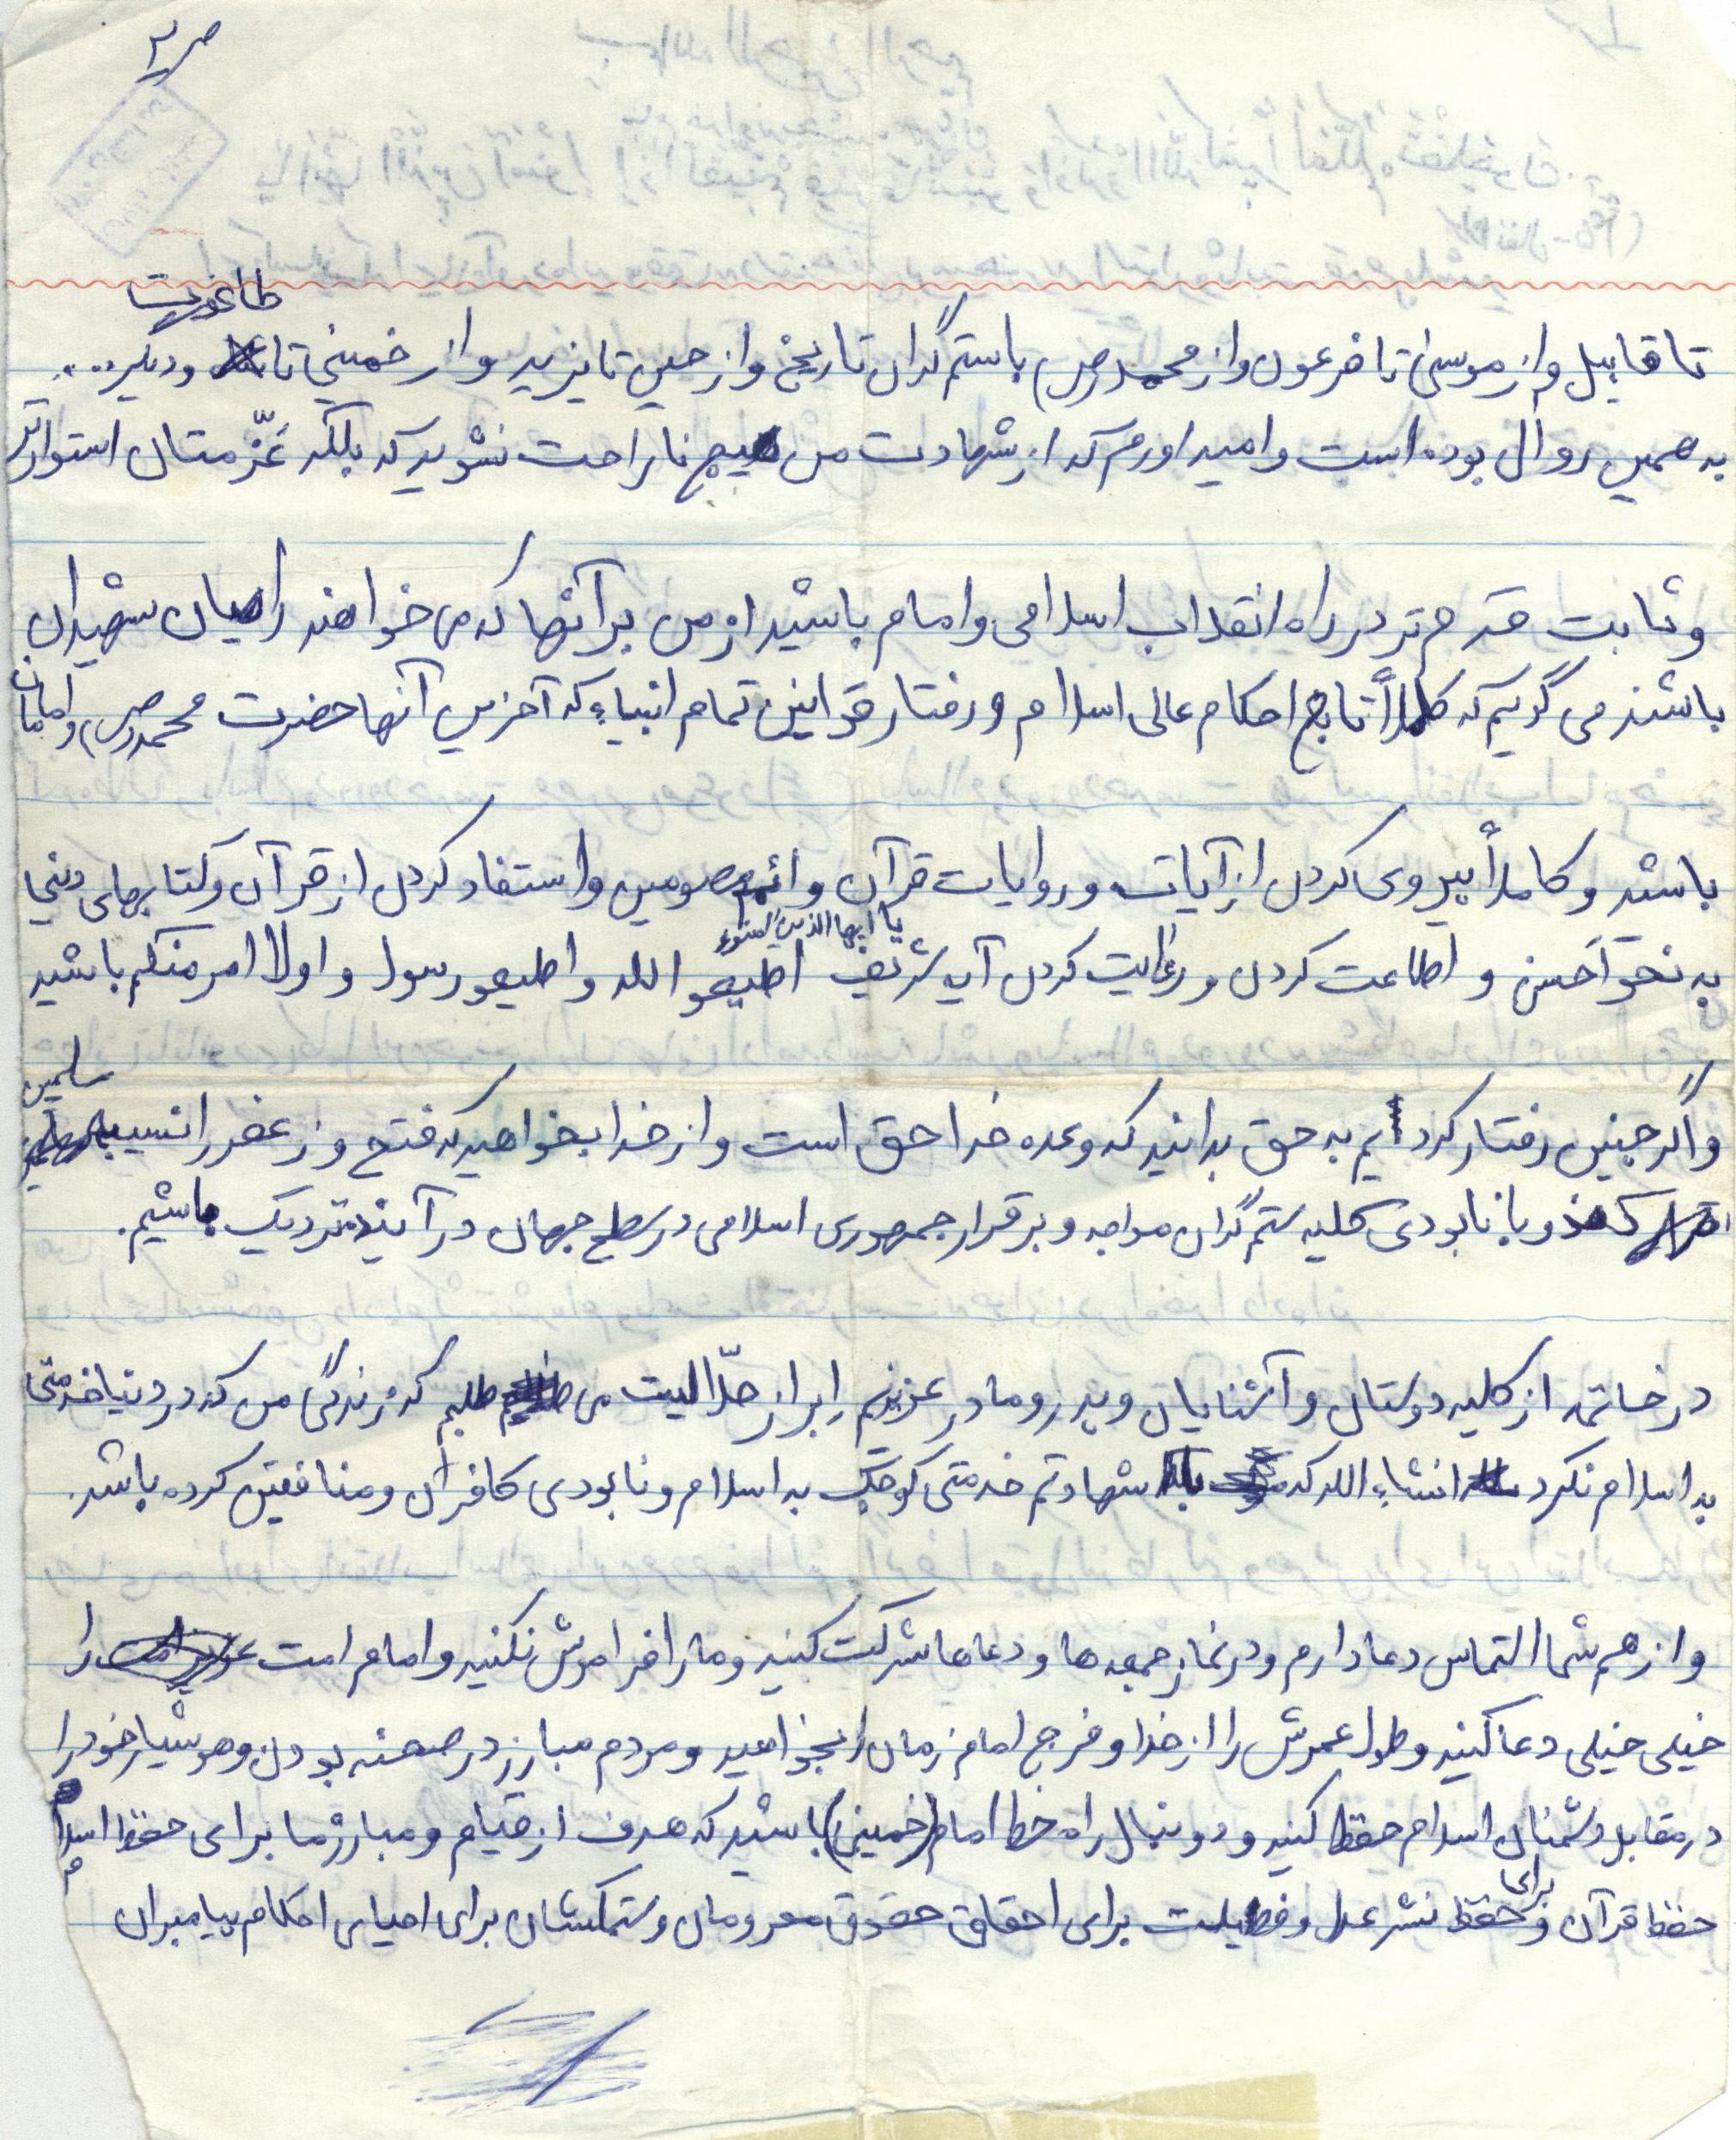 ص ۲
طاغوت
تا قابیل و از موسی تا فرعون و از محمد (ص) با ستم گران تاریخ و از حسین تا یزید و از خمینی تا و دیگر...
به همین روال بوده است و امید اورم که از شهادت من هیچ ناراحت نشوید که بلکه عزّمتان استوارتر
و ثابت قدم تر در راه انقلاب اسلامی و امام باشید از من بر آنها که می خواهند راهیان شهیدان
باشند می گویم که کاملاً تابع احکام عالی اسلام و رفتار قوانین تمام انبیاء که آخرین آنها حضرت محمد (ص) و امامان
باشد و کاملاً پیروی کردن از آیات و روایات قرآن و ائمه معصومین و استفاد کردن از قرآن و کتابهای دینی
یا ایها الذین امنو
به نحو اَحسن و اطاعت کردن و رعایت کردن آیه شریف اطیعو الله و اطیعو رسول و اولا امر منکم باشید
مسلمین
و اگر چنین رفتار کرد ایم به حق بدانید که وعده خدا حق است و از خدا بخواهید که فتح و زعفر را نسیب
کند و با نابودی کلیه ستم گران مواجه و برقرار جمهوری اسلامی در سطح جهان در آینده نزدیک باشیم.
در خاتمه از کلیه دوستان و آشنایان و پدر و مادر عزیزم ابراز حلّالیت می طلبم که زندگی من که در دنیا خدمتی
به اسلام نکرد انشاء الله که با شهادتم خدمتی کوچک به اسلام و نابودی کافران و منافقین کرده باشد.
و از هم شما التماس دعا دارم و در نماز جمعه ها و دعاها شرکت کنید و ما را فراموش نکنید و امام امت را
خیلی خیلی دعا کنید و طول عمرش را از خدا و فرج امام زمان را بخواهید و مردم مبارز در صحنه بودن و هوشیار خود را
در مقابل دشمنان اسلام حفظ کنید و دونبال راه خط امام (خمینی) باشید که هدف از قیام و مبارز ما برای حفظ اسلام
برای
حفظ قرآن و حفظ نشر عدل و فضیلت برای احقاق حقوق محرومان و ستمکشان برای احیای احکام پیامبران